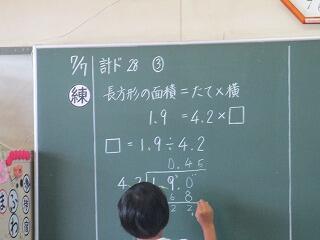 7/7 計ド28 ③
練 長方形の面積＝たて×横
1.9 ＝4.2×□
□＝1.9÷4.2
0.45
4.2 1.9.0
6 8
2 2